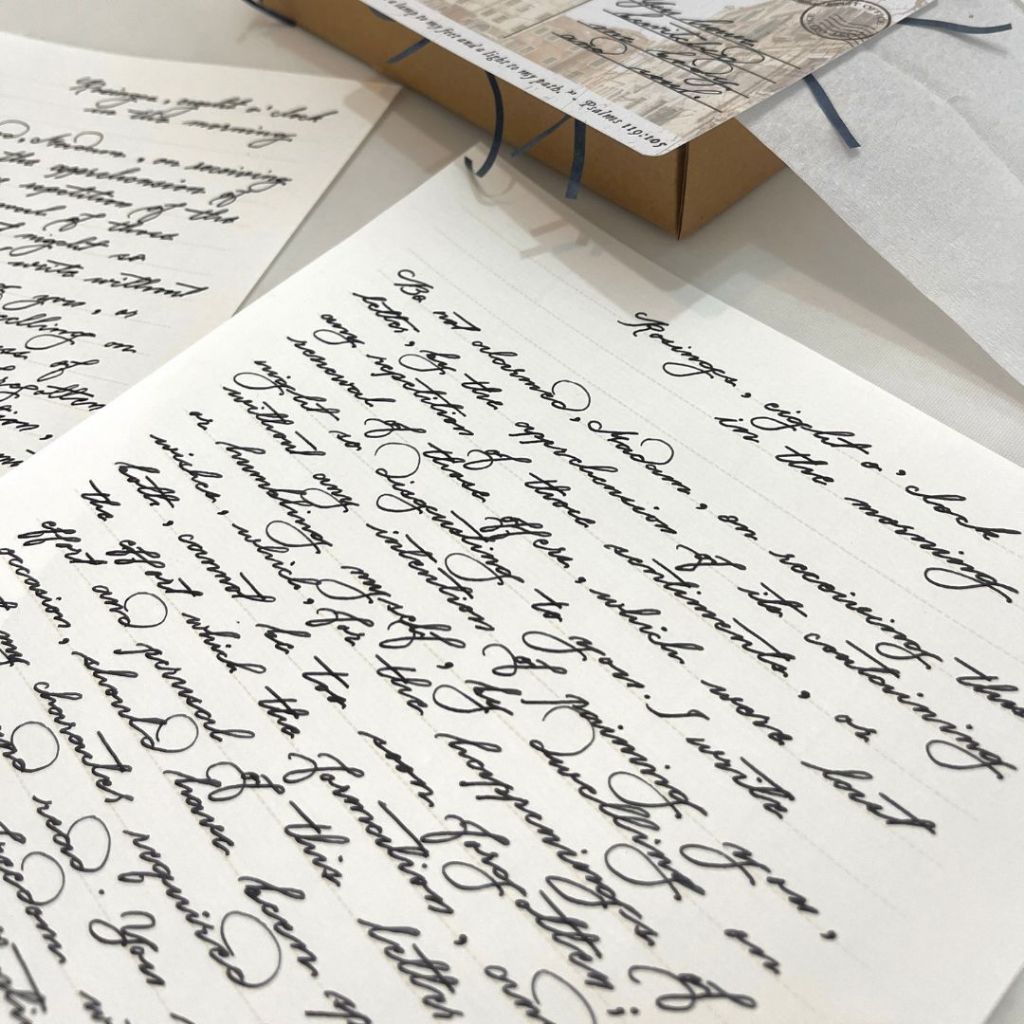 a lamp to my feet and a light to my path." - Psalms 119:105
Rosings, eight o'clock
in the morning
, Madam, on receiving
the apprehension of
repetition of the
of those
night so
write without
you, or
Dwelling on
of
forgotten
Rosings, eight o'clock
in the morning
Be not alarmed, Madam, on receiving this
letter, by the apprehension of its containing
any repetition of those sentiments, or
renewal of those offers, which were last
night so Disgusting to you. I write
without any intention of paining you,
or humbling myself, by Dwelling on
wishes, which, for the happiness of
both, cannot be too soon forgotten;
the effort which the formation, and
effort and perusal of this letter
occasion, should have been
my character required
and read. You
freedom